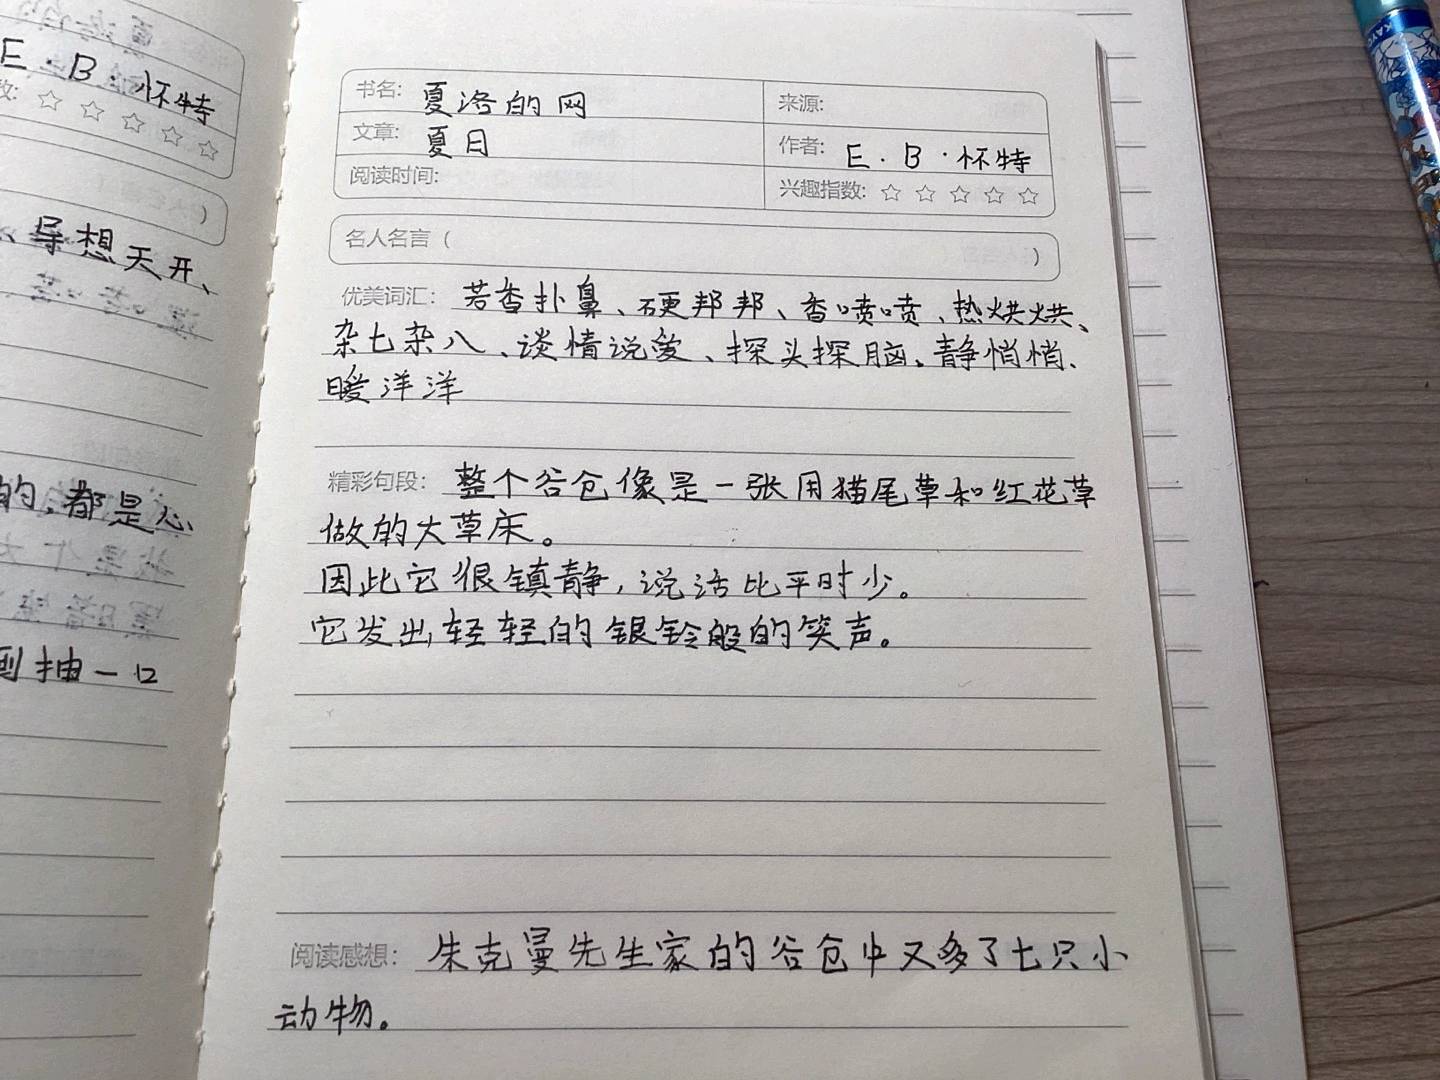 E·B·怀特
数: ☆ ☆ ☆ ☆ ☆
)
、异想天开、
的,都是心
到抽一口
书名: 夏洛的网
来源:
文章: 夏日
作者: E·B·怀特
阅读时间:
兴趣指数: ☆ ☆ ☆ ☆ ☆
名人名言 ( )
优美词汇: 芳香扑鼻、硬邦邦、香喷喷、热烘烘、
杂七杂八、谈情说爱、探头探脑。静悄悄、
暖洋洋
精彩句段: 整个谷仓像是一张用猫尾草和红花草
做的大草床。
因此它很镇静,说话比平时少。
它发出轻轻的银铃般的笑声。
阅读感想: 朱克曼先生家的谷仓中又多了七只小
动物。